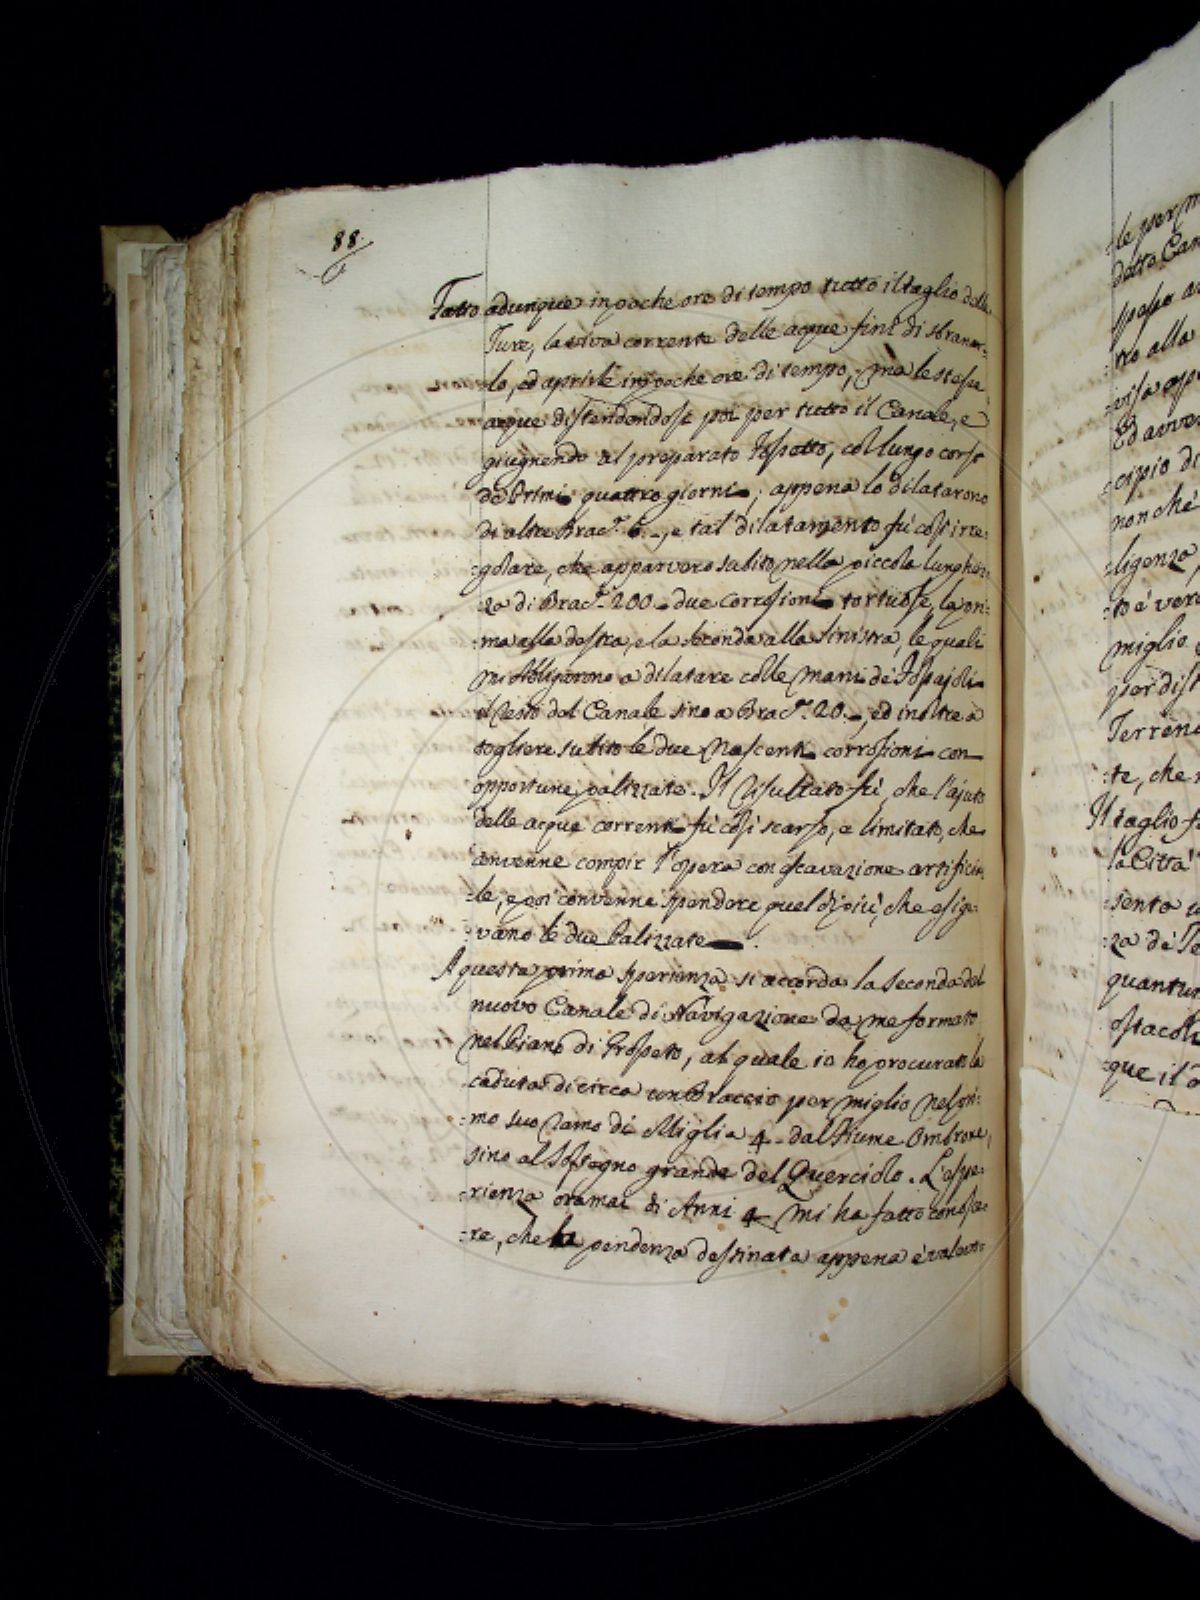 88.
Fatto adunque in poche ore di tempo tutto il taglio delle
Ture, la viva corrente delle acque finì di sbranar-
-lo, ed aprirle in poche ore di tempo, ma le stesse
acque distendendosi poi per tutto il Canale, e
giugnendo al preparato Fossetto, col lungo corso
de Primi quattro giorni, appena lo dilatarono
di altre Brac. 6., e tal dilatamento fù così irre-
-golare, che apparvero subito nella piccola lunghez-
-za di Brac. 200. due corrosioni tortuose, la pri-
-ma alla destra, e la seconda alla sinistra, le quali
mi obbligarono a dilatare colle mani de' Fossajoli
il resto del Canale sino a Brac. 20., ed inoltre a
togliere subito le due nascenti corrosioni con
opportune palizzate. Il risultato fù, che l'ajuto
delle acque correnti fù così scarso, e limitato, che
convenne compir l'opera con escavazione artificia-
-le, e poi convenne spendere quel di più, che esige-
-vano le due Palizzate.
A questa prima sperienza si accorda la seconda del
nuovo Canale di Navigazione da me formato
nel Piano di Grosseto, al quale io ho procurato la
caduta di circa un Braccio per miglio nel pri-
-mo suo ramo di Miglia 4. dal Fiume Ombrone,
sino al Sostegno grande del Querciolo. L'espe-
-rienza oramai di Anni 4 mi ha fatto conosce-
-re, che la pendenza destinata appena è valevo-
-le per m
detto Can
spesse
-tro alla
-visa
Ed avver
-cipio di
non ché
-ligenza,
-to è vero
miglio
per dist
Terreno
-te, che
Il taglio f
la Città
-sento
-za de' Te
quantun
ostacoli
-que il